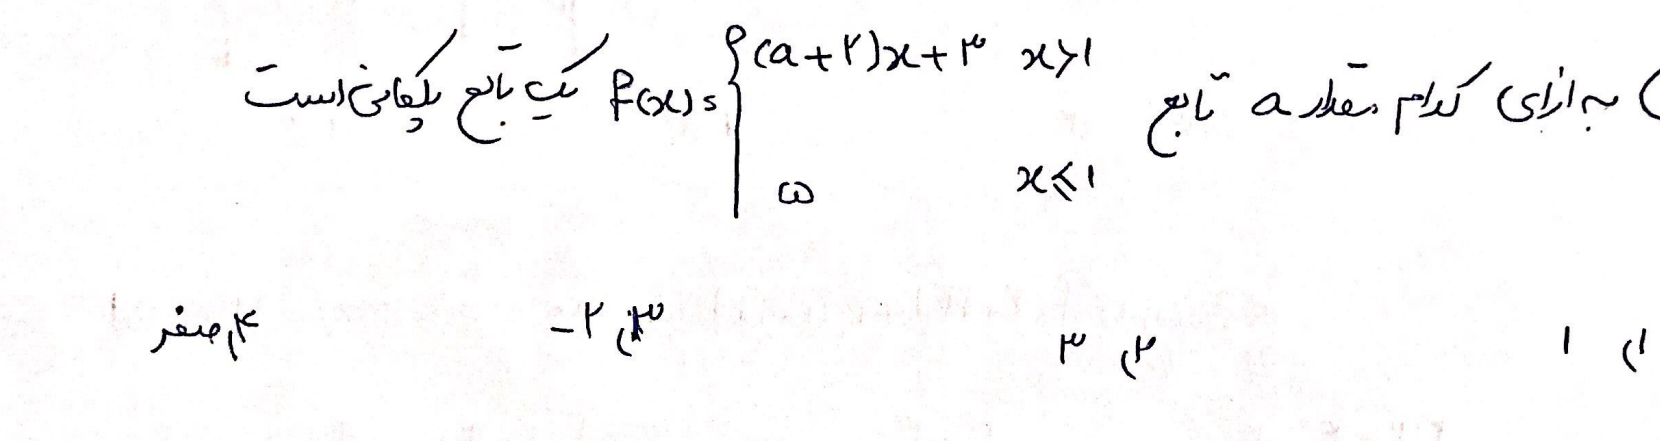 ) به ازای کدام مقدار a تابع f(x)= { (a+۲)x+۳ x>۱ یک تابع پلکانی است
۵ x≤۱
۱) ۱ ۲) ۳ ۳) -۲ ۴) صفر